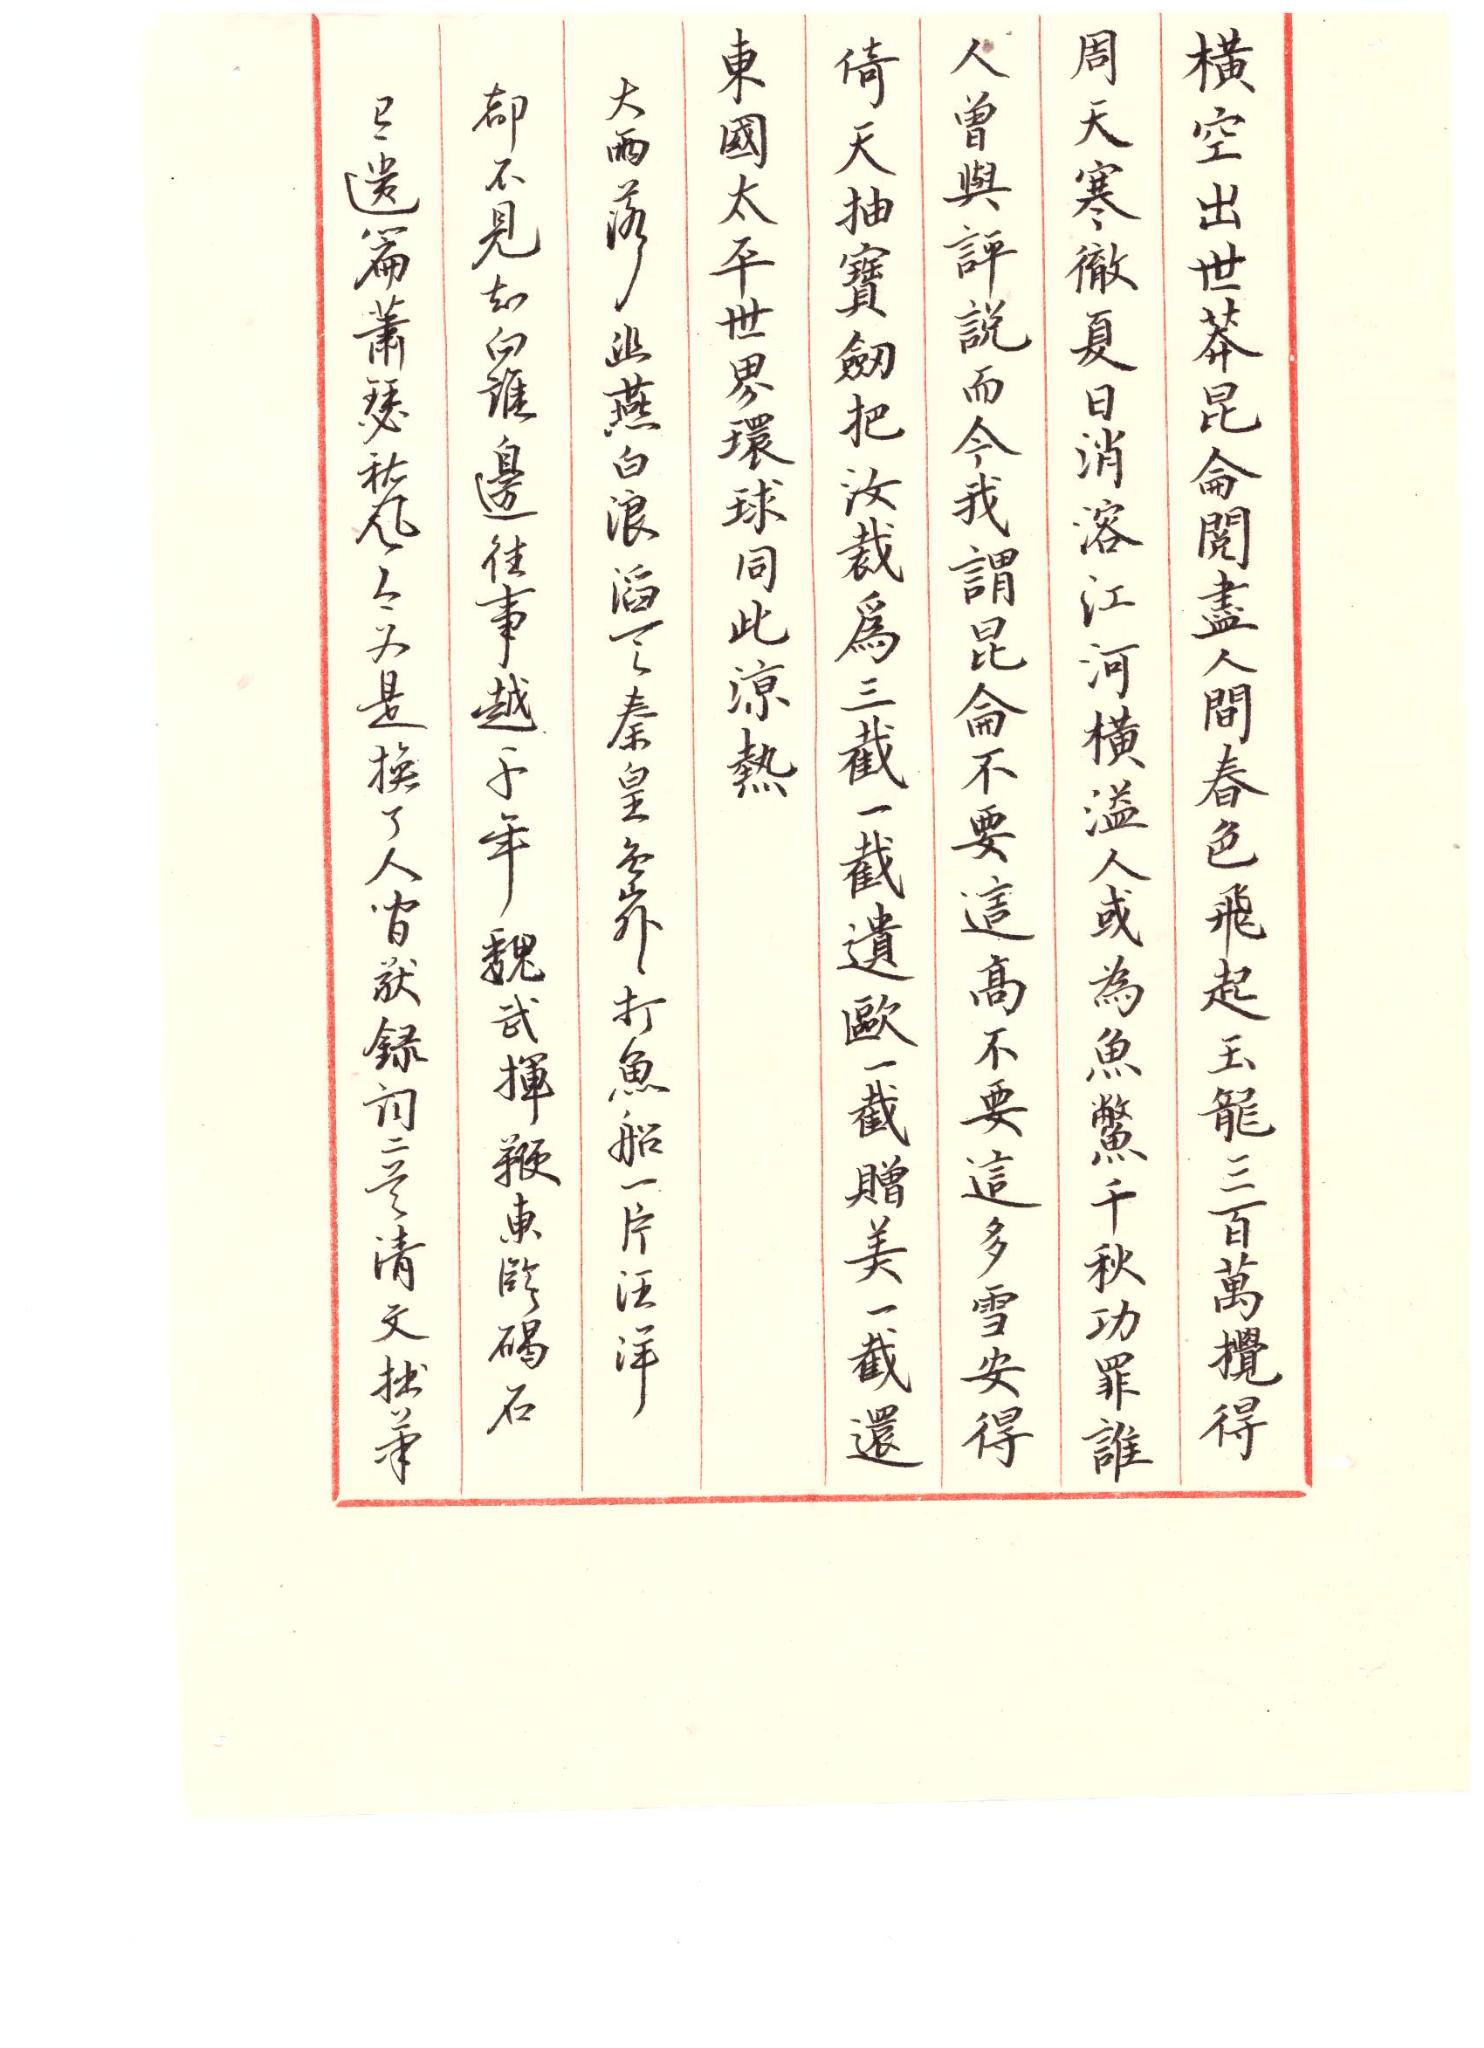 橫空出世莽昆侖閱盡人間春色飛起玉龍三百萬攪得
周天寒徹夏日消溶江河橫溢人或為魚鱉千秋功罪誰
人曾與評說而今我謂昆侖不要這高不要這多雪安得
倚天抽寶劒把汝裁爲三截一截遺歐一截贈美一截還
東國太平世界環球同此涼熱
大雨落幽燕白浪滔天秦皇島外打魚船一片汪洋
都不見知向誰邊往事越千年魏武揮鞭東臨碣石
已遺篇蕭瑟秋風今又是換了人間 錄詞二首清文拙筆